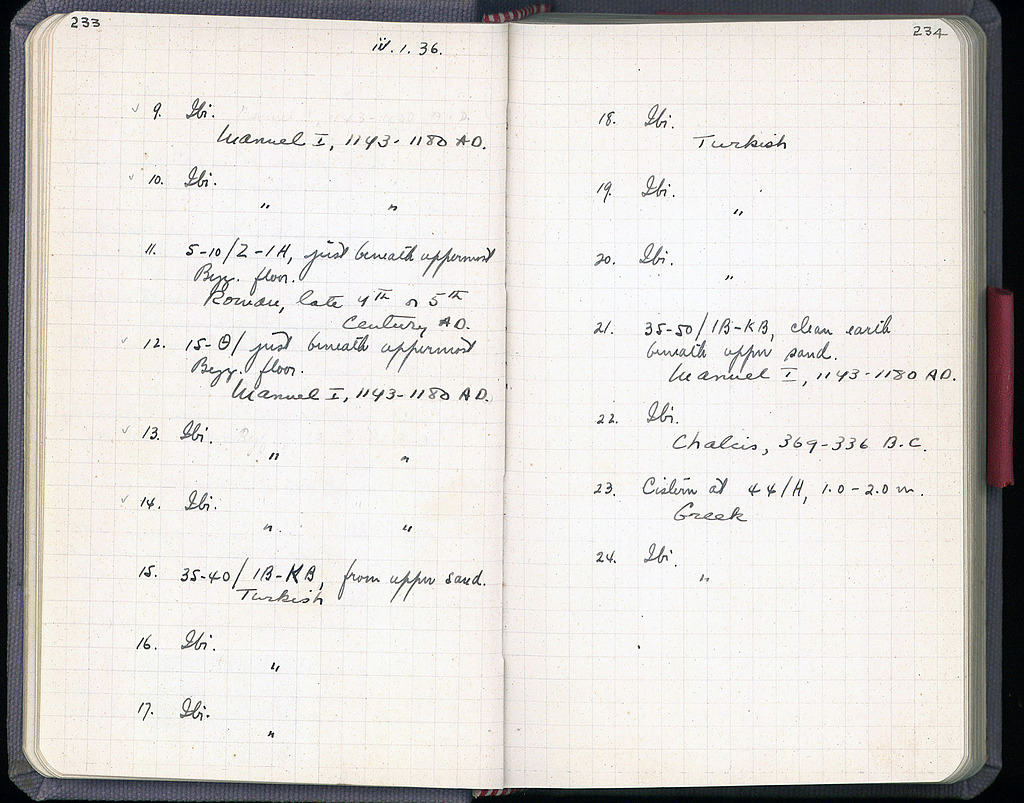 233
iv.1.36.
✓ 9. Ibi.
Manuel I, 1143-1180 AD.
✓ 10. Ibi.
" "
11. 5-10/Z-IH, just beneath uppermost
Byz. floor.
Roman, late 4th or 5th
Century AD.
✓ 12. 15-Θ/ just beneath uppermost
Byz. floor.
Manuel I, 1143-1180 AD.
✓ 13. Ibi.
" "
✓ 14. Ibi.
" "
15. 35-40/IB-KB, from upper sand.
Turkish
16. Ibi.
"
17. Ibi.
"
234
18. Ibi.
Turkish
19. Ibi.
"
20. Ibi.
"
21. 35-50/IB-KB, clean earth
beneath upper sand.
Manuel I, 1143-1180 AD.
22. Ibi.
Chalcis, 369-336 B.C.
23. Cistern at 44/H, 1.0-2.0 m.
Greek
24. Ibi.
"